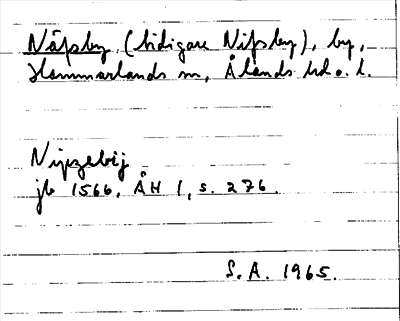 Näfsby (tidigare Nifsby), by,
Hammarlands sn, Ålands hd o. l.
Nipzebij
jb 1566, ÅH 1, s. 276.
S.A. 1965.